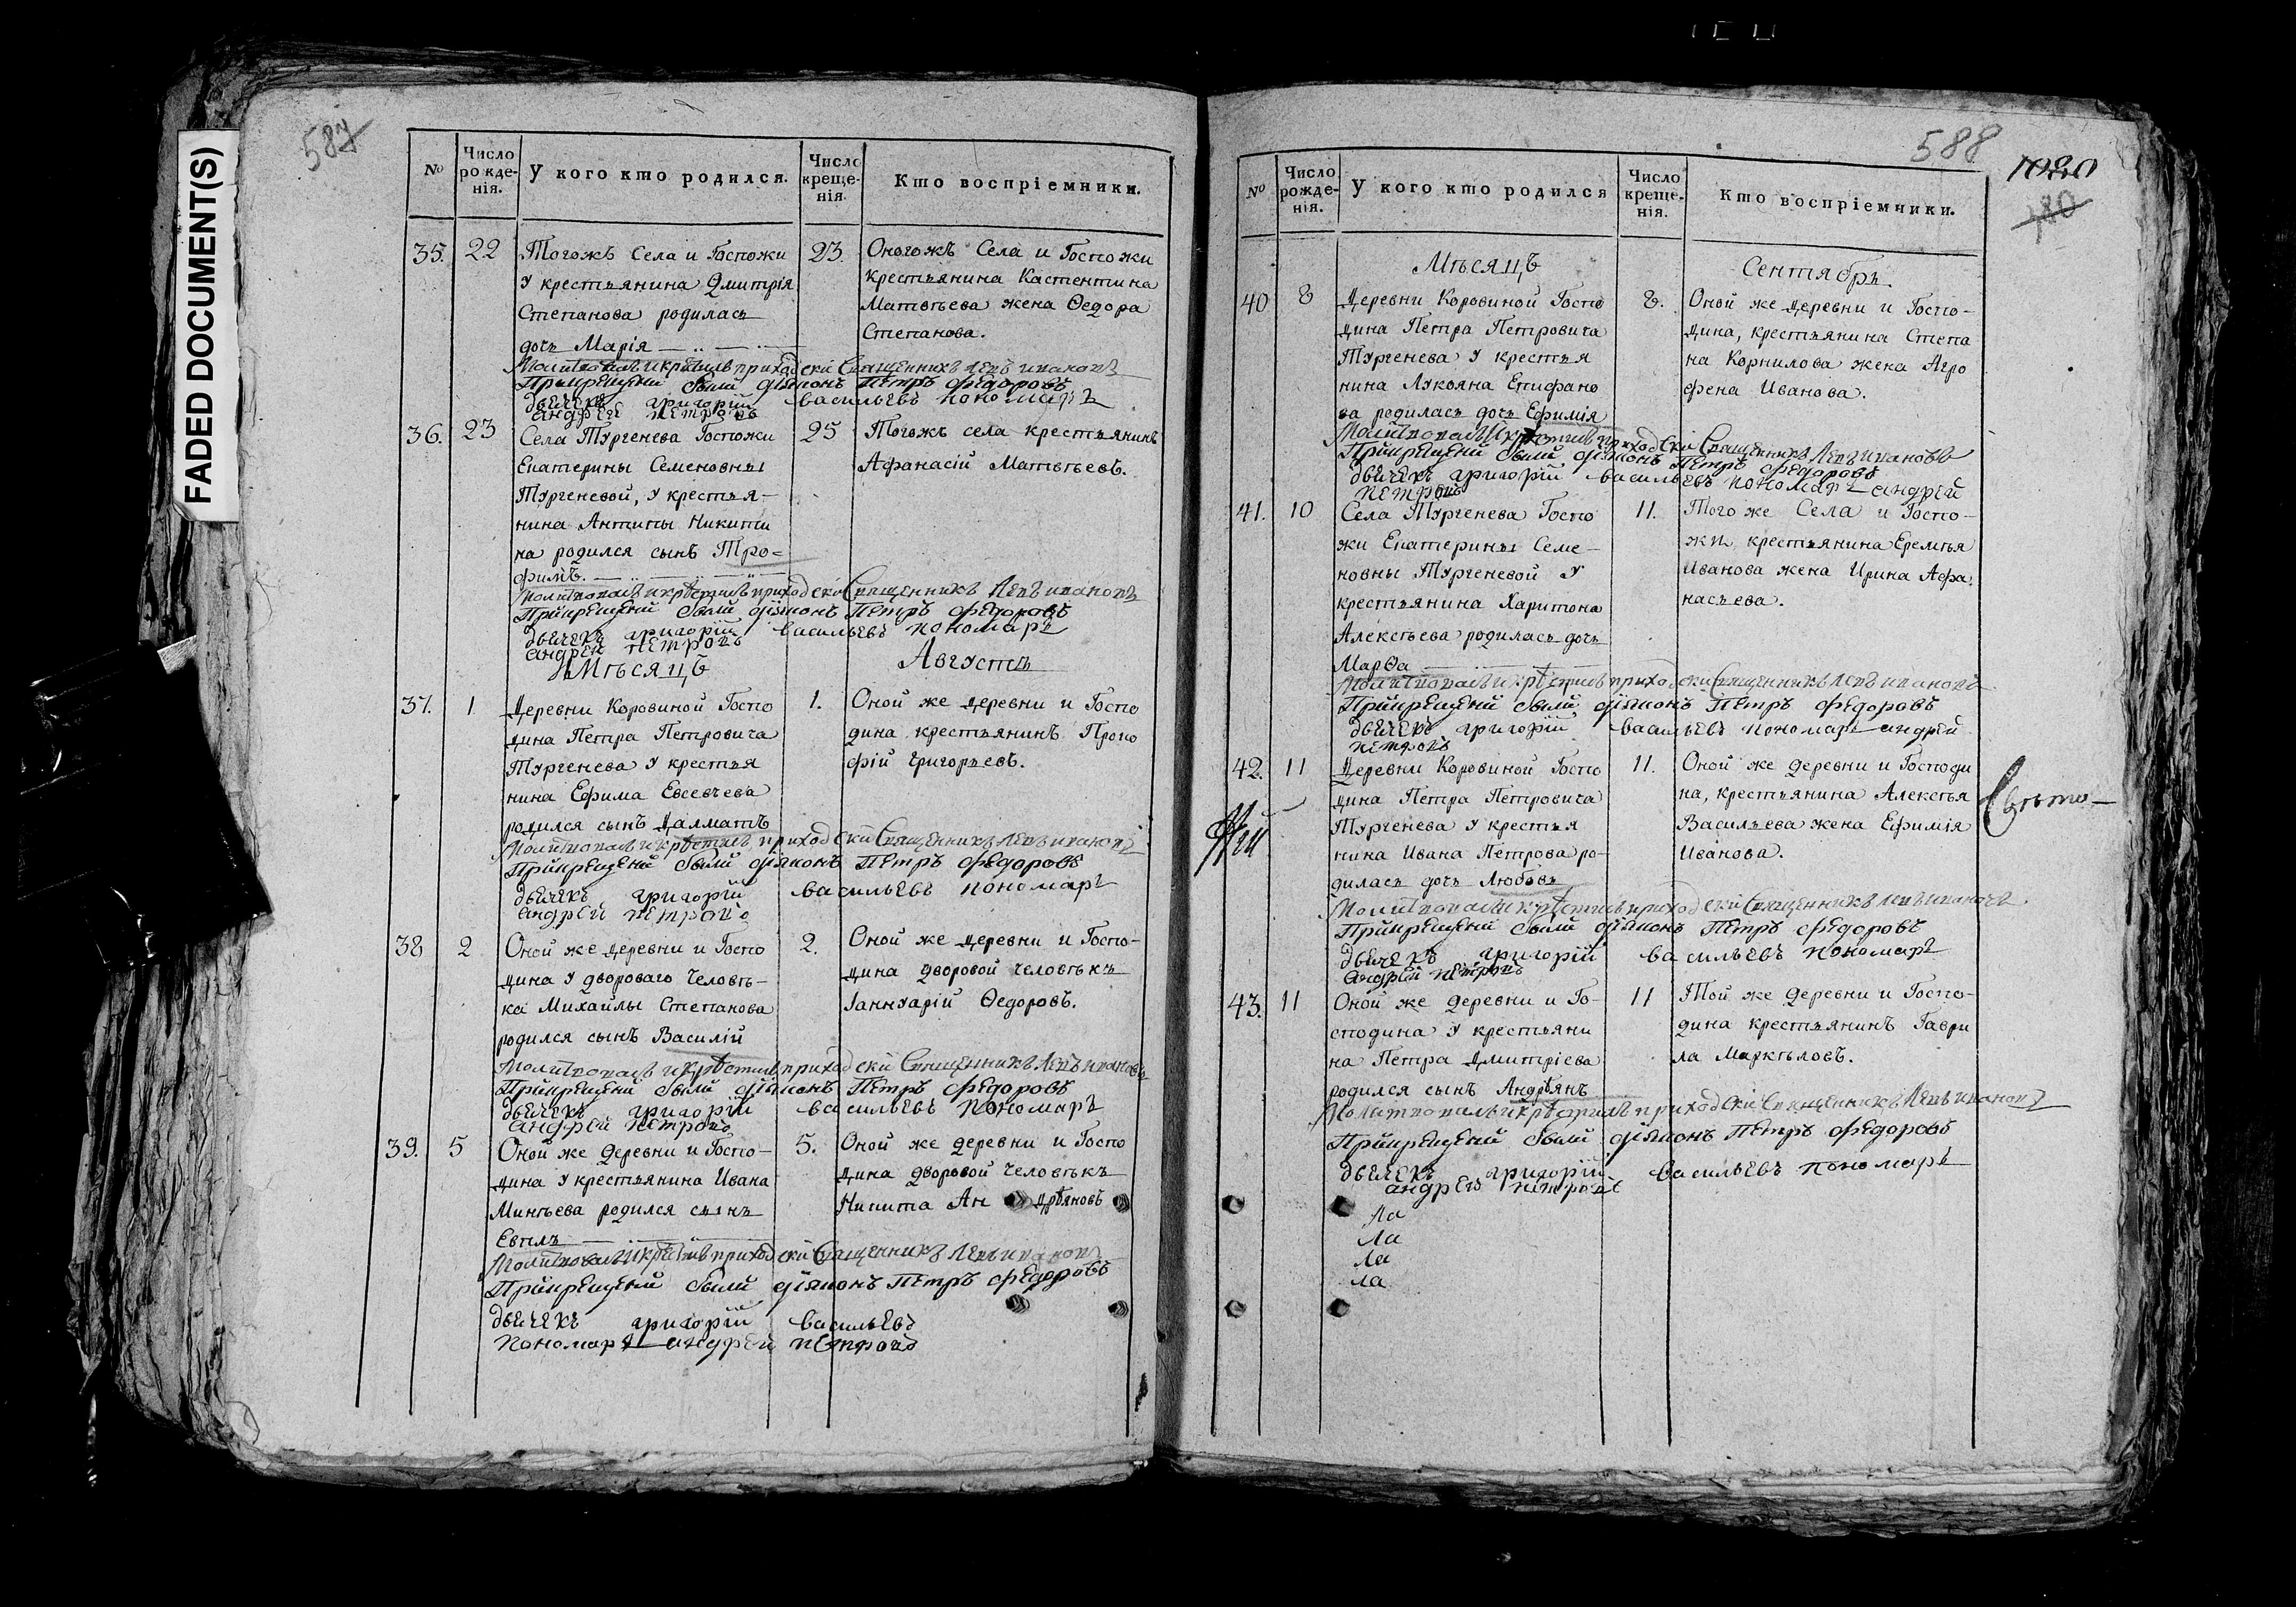 FADED DOCUMENT(S)
587
№
Число рожде-нія.
У кого кто родился.
Число креще-нія.
Кто воспріемники.
35.
22
Тогожъ Села и Госпожи
у крестьянина Дмитрія
Степанова родилась
дочь Марія
23.
Оногожъ Села и Госпожи
крестьянина Кастентина
Матвѣева жена Ѳедора
Степанова.
Молитвовалъ и крестилъ приходскій Священникъ Левъ Ивановъ
При крещеніи были діяконъ Петръ Федоровъ
дьячекъ григорій васильевъ пономарь
андрей петровъ
36.
23
Села Тургенева Госпожи
Екатерины Семеновны
Тургеневой, у крестья-
нина Антипы Никити
на родился сынъ Тро=
фимъ.
25
Тогожъ села крестьянинъ
Афанасій Матвѣевъ.
Молитвовалъ и крестилъ приходскій Священникъ Левъ Ивановъ
При крещеніи были діяконъ Петръ Федоровъ
дьячекъ григорій васильевъ пономарь
андрей петровъ
Мѣсяцъ Августъ
37.
1
Деревни Коровиной Госпо
дина Петра Петровича
Тургенева у крестья
нина Ефима Евсевчева
родился сынъ Далматъ
1.
Оной же деревни и Госпо
дина крестьянинъ Проко
фій Григорьевъ.
Молитвовалъ и крестилъ приходскій Священникъ Левъ Ивановъ
При крещеніи были діяконъ Петръ Федоровъ
дьячекъ григорій васильевъ пономарь
андрей петровъ
38
2
Оной же деревни и Госпо
дина у двороваго человѣ-
ка Михайлы Степанова
родился сынъ Василій
2.
Оной же деревни и Госпо-
дина дворовой человѣкъ
Іаннуарій Ѳедоровъ.
Молитвовалъ и крестилъ приходскій Священникъ Левъ Ивановъ
При крещеніи были діяконъ Петръ Федоровъ
дьячекъ григорій васильевъ пономарь
андрей петровъ
39.
5
Оной же деревни и Госпо-
дина у крестьянина Ивана
Минѣева родился сынъ
Евплъ
5.
Оной же деревни и Госпо
дина дворовой человѣкъ
Никита Андреяновъ
Молитвовалъ и крестилъ приходскій Священникъ Левъ Ивановъ
При крещеніи были діяконъ Петръ Федоровъ
дьячекъ григорій васильевъ
пономарь андрей петровъ
588
1080
№
Число рожде-нія.
У кого кто родился
Число креще-нія.
Кто воспріемники.
Мѣсяцъ Сентябрь.
40
8
Деревни Коровиной Госпо
дина Петра Петровича
Тургенева у крестья
нина Лукояна Епифано
ва родилась дочь Ефимія
8.
Оной же деревни и Госпо-
дина, крестьянина Степа
на Корнилова жена Агро
фена Иванова.
Молитвовалъ и крестилъ приходскій Священникъ Левъ Ивановъ
При крещеніи были діяконъ Петръ Федоровъ
дьячекъ григорій васильевъ пономарь андрей
петровъ
41.
10
Села Тургенева Госпо
жи Екатерины Семе-
новны Тургеневой у
крестьянина Харитона
Алексѣева родилась дочь
Марѳа
11.
Того же Села и Госпо-
жи крестьянина Еремѣя
Иванова жена Ирина Афа:
насьева.
Молитвовалъ и крестилъ приходскій Священникъ Левъ Ивановъ
При крещеніи были діяконъ Петръ Федоровъ
дьячекъ григорій васильевъ пономарь андрей
петровъ
42.
11
Деревни Коровиной Госпо
дина Петра Петровича
Тургенева у крестья
нина Ивана Петрова ро-
дилась дочь Любовь
11.
Оной же деревни и Господи
на, крестьянина Алексѣя
Васильева жена Ефимія
Иванова.
Молитвовалъ и крестилъ приходскій Священникъ Левъ Ивановъ
При крещеніи были діяконъ Петръ Федоровъ
дьячекъ григорій васильевъ пономарь
андрей петровъ
43.
11
Оной же деревни и Го-
сподина у крестьяни
на Петра Дмитріева
родился сынъ Андреянъ
11
Той же деревни и Госпо-
дина крестьянинъ Гаври
ла Маркѣловъ.
Молитвовалъ и крестилъ приходскій Священникъ Левъ Ивановъ
При крещеніи были діяконъ Петръ Федоровъ
дьячекъ григорій васильевъ пономарь
андрей петровъ
Ла
Ла
Ла
ла